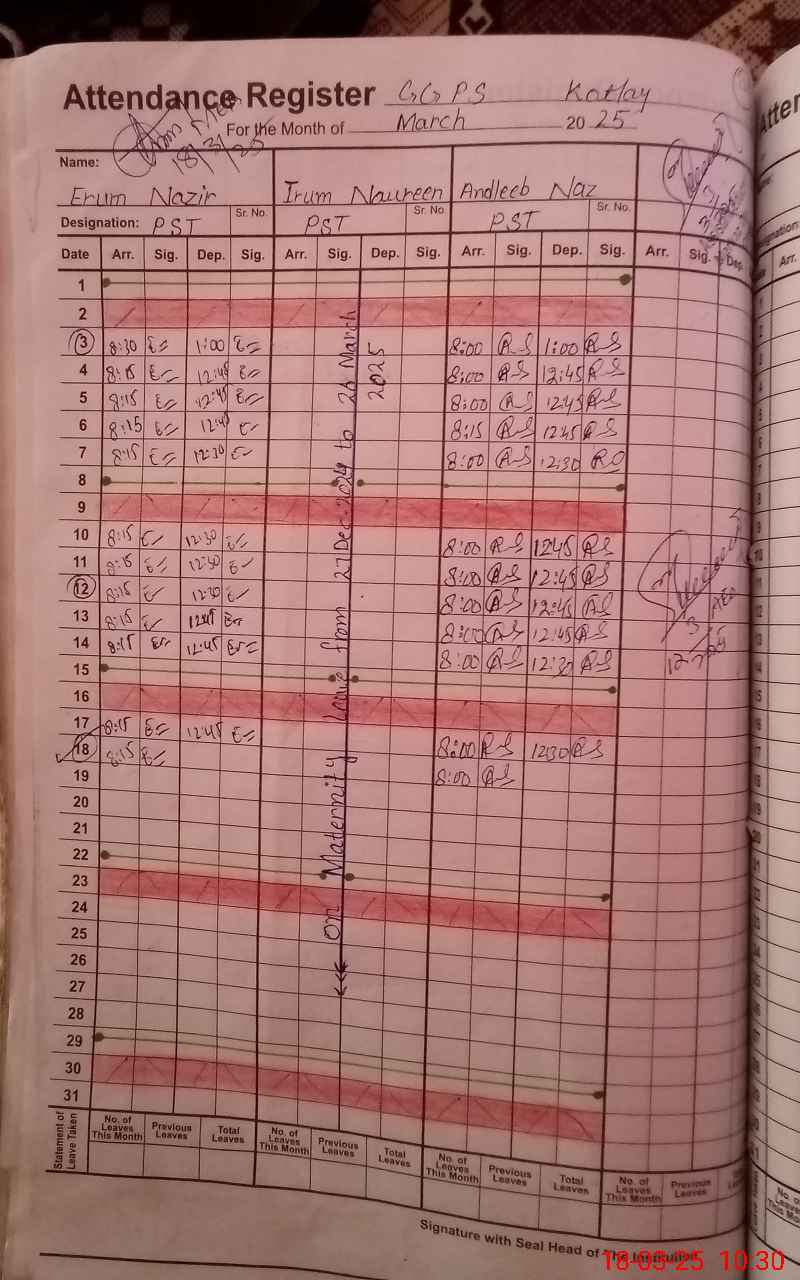 Attendance Register GGPS Katlay
For the Month of March 2025
18/3/25
Name:
Erum Nazir Irum Naureen Andleeb Naz
Designation: PST Sr. No. PST Sr. No. PST Sr. No.
Date Arr. Sig. Dep. Sig. Arr. Sig. Dep. Sig. Arr. Sig. Dep. Sig. Arr. Sig. Dep.
1
2
3 8:30 1:00 8:00 1:00
4 8:15 12:45 8:00 12:45
5 8:15 12:45 8:00 12:45
6 8:15 8:15 12:45
7 8:15 12:30 8:00 12:30
8
9
10 8:15 12:30 8:00 12:45
11 8:15 8:00 12:45
12 8:15 12:30 8:00 12:45
13 8:15 12:45 8:00 12:45
14 8:15 12:45 8:00 12:30
15
16
17 8:15 12:45 8:00 12:30
18 8:15 8:00
19
20
21
22
23
24
25
26
27
28
29
30
31
on Maternity Leave from 27 Dec 2024 to 26 March
2025
Statement of Leave Taken
No. of Leaves This Month Previous Leaves Total Leaves No. of Leaves This Month Previous Leaves Total Leaves No. of Leaves This Month Previous Leaves Total Leaves No. of Leaves This Month Previous Leaves
Signature with Seal Head of The Institution
18-03-25 10:30